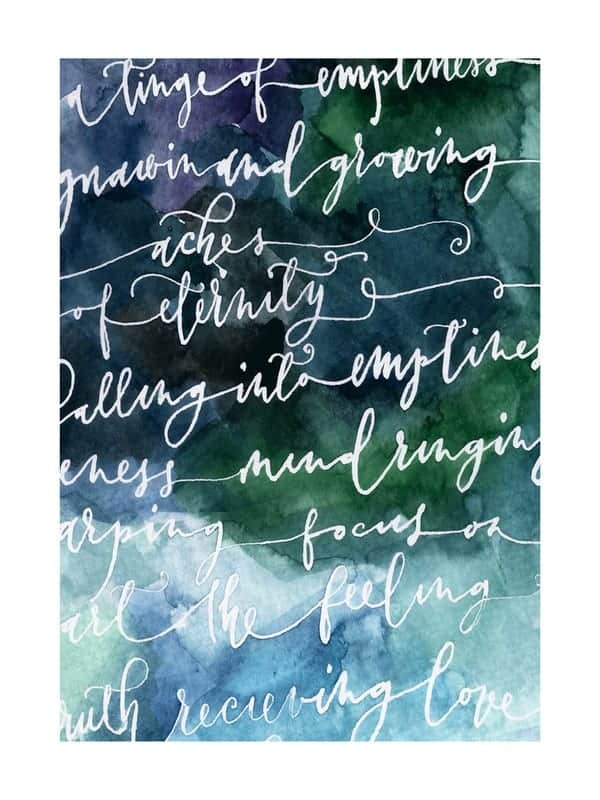 a tinge of emptiness
gnawin and growing
aches
of eternity
falling into emptines
eness mind ringing
arping focus on
art the feeling
ruth recieving love